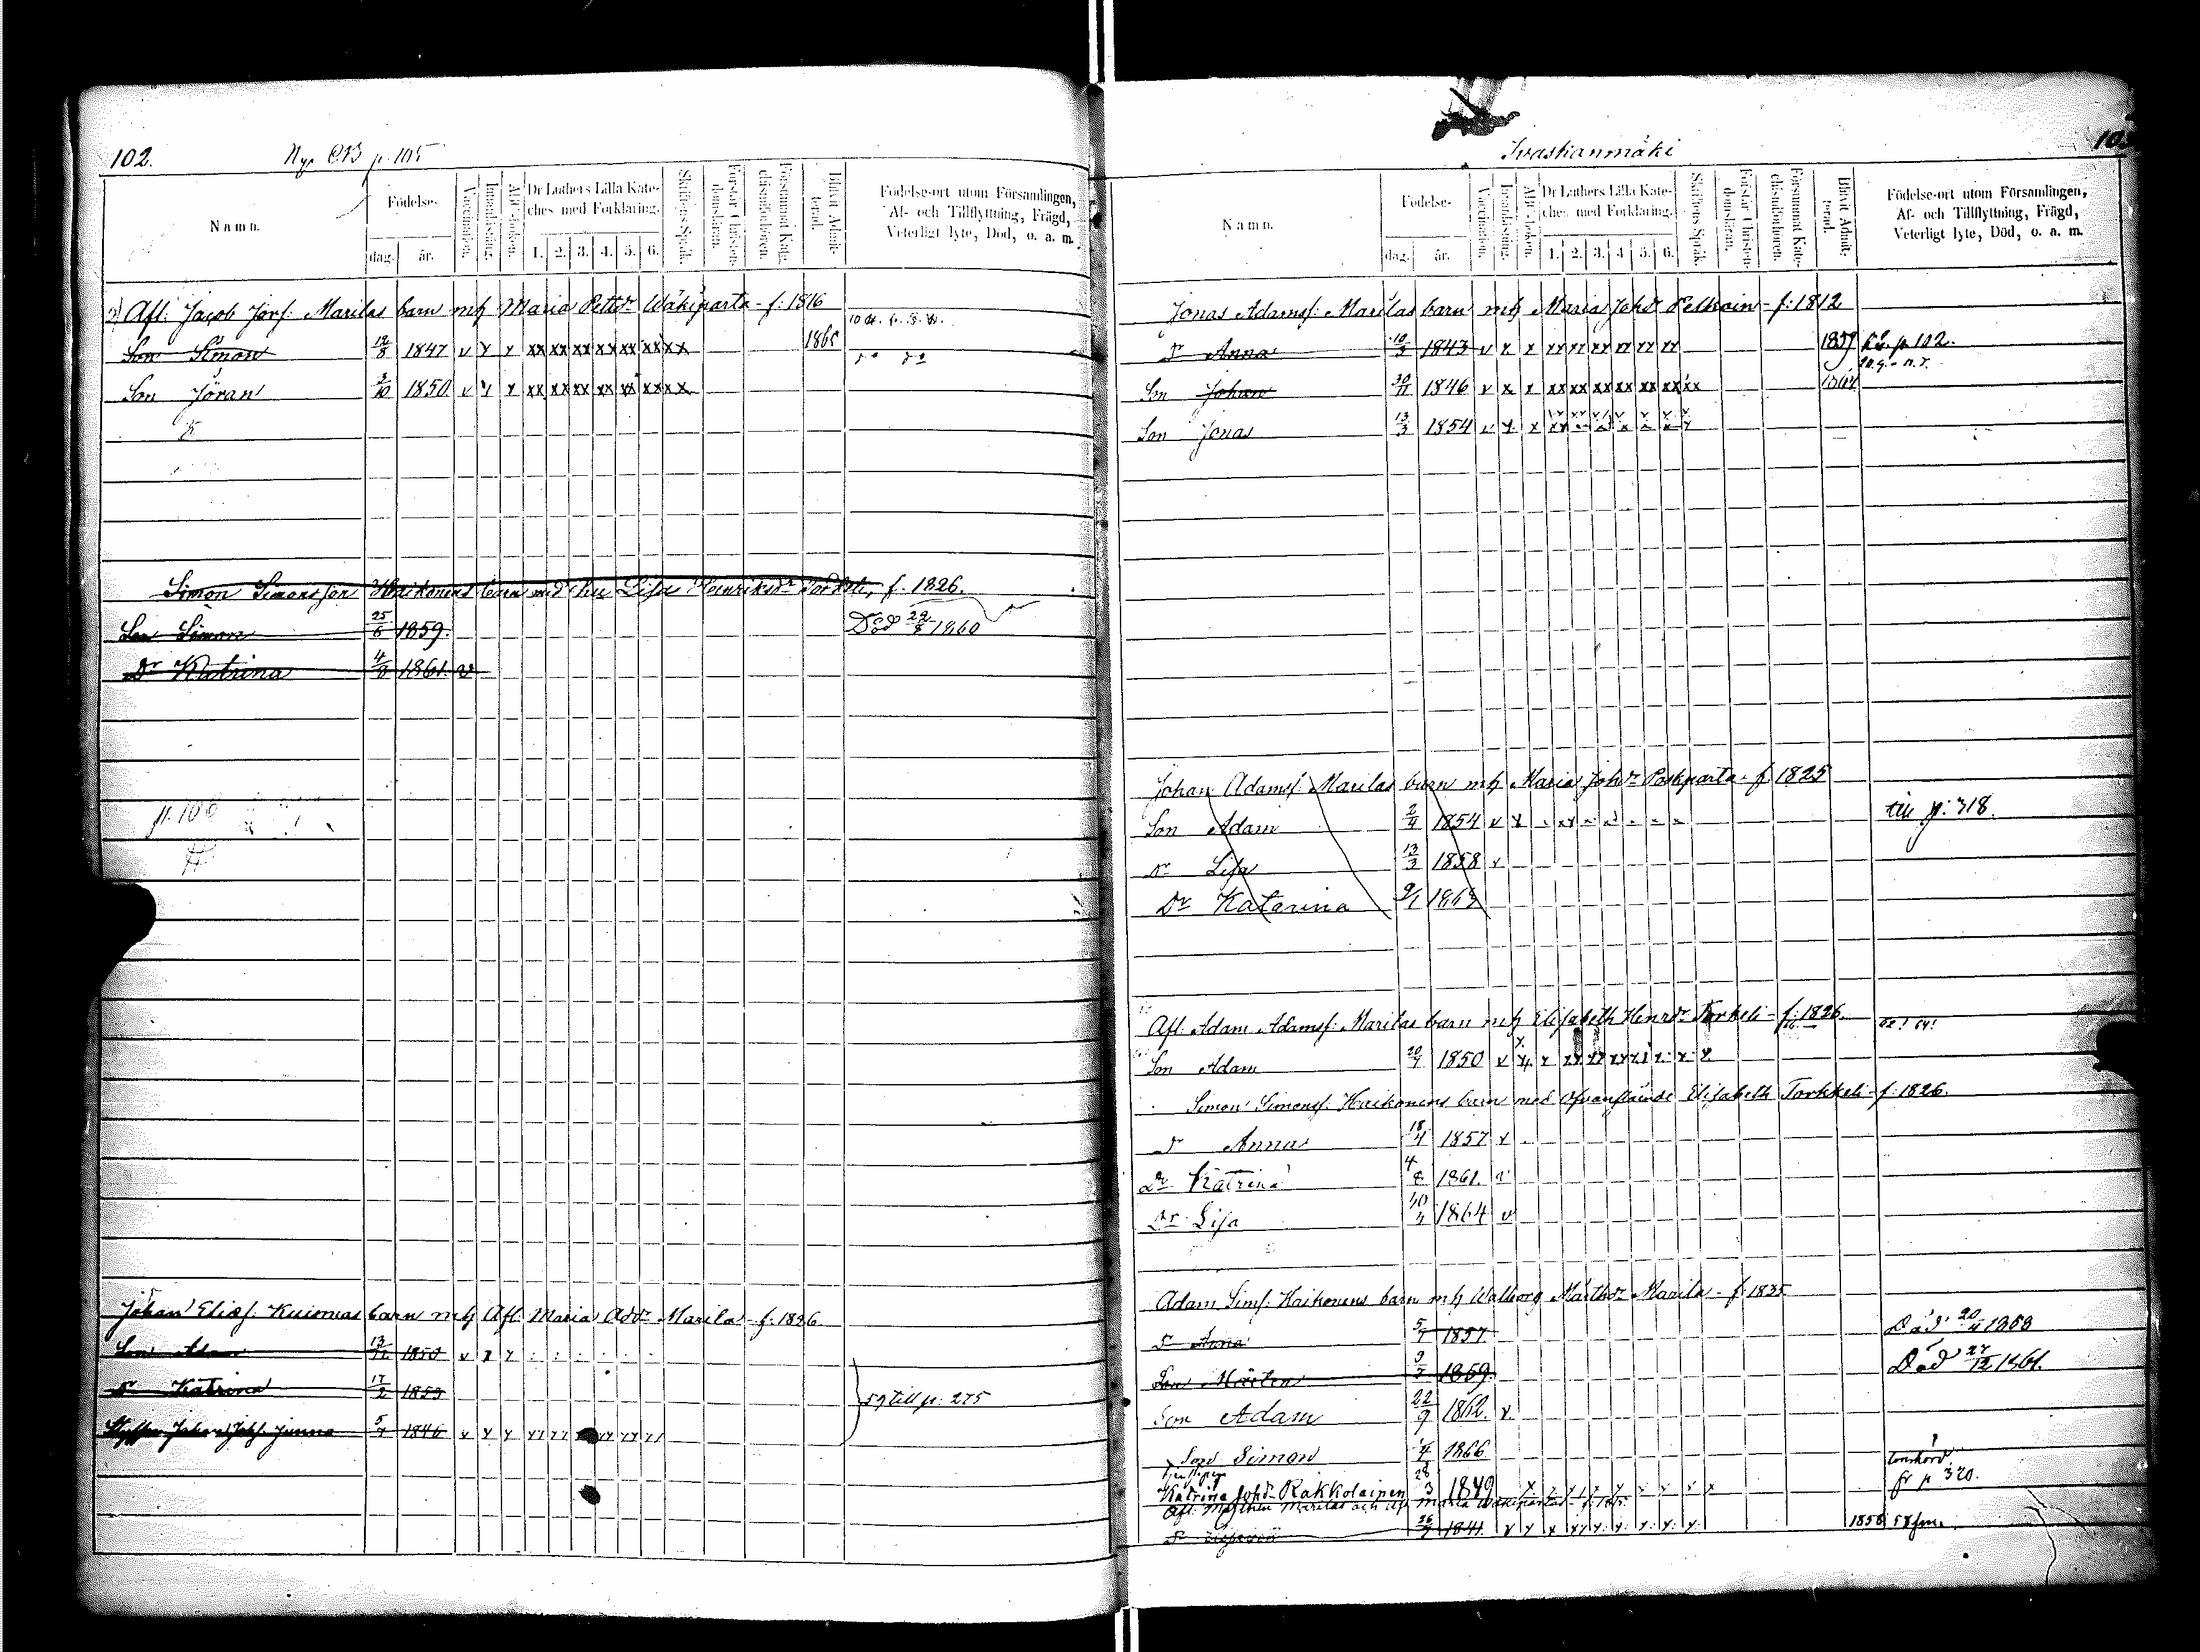 102.
Nya CB p. 105
Namn.
Födelse-
dag.
år.
Vaccination.
Innanläsning.
Abc-boken.
Dr Luthers Lilla Kate-
ches med Förklaring.
1. 2. 3. 4. 5. 6.
Skriftens Språk.
Förstår Christen-
domsläran.
Försummat Kate-
chismiförhören.
Blifvit Admit-
terad.
Födelse-ort utom Församlingen,
Af- och Tillflyttning, Frägd,
Veterligt lyte, Död, o. a. m.
Afl. Jacob Jörs. Marilas barn mh Maria Pettdr Wäkiparta - f. 1816
Son Simon 12/8 1847 v x x xx xx xx xx xx xx xx 1865
Son Jöran 3/10 1850 v x x xx xx xx xx xx xx xx
Simon Simonsson Haikonens barn med hu Lisa Henriksdr Torkeli, f. 1826.
Son Simon 25/6 1859. Död 22/8 1860
Dr Katrina 4/8 1861. v
p. 100
Johan Eliæs. Kuismas barn mh Afl. Maria Addr Marilas - f. 1826
Son Adam 13/11 1850 v x x
Dr Katrina 17/2 1853
59 till p. 275
Johan Johs. Jinna 5/4 1846 v x x
Ivaskanmäki
Namn.
Födelse-
dag.
år.
Vaccination.
Innanläsning.
Abc-boken.
Dr Luthers Lilla Kate-
ches med Förklaring.
1. 2. 3. 4. 5. 6.
Skriftens Språk.
Förstår Christen-
domsläran.
Försummat Kate-
chismiförhören.
Blifvit Admit-
terad.
Födelse-ort utom Församlingen,
Af- och Tillflyttning, Frägd,
Veterligt lyte, Död, o. a. m.
Jonas Adamsf. Marilas barn mh Maria Johdr Pelkoin - f. 1812
Dr Anna 10/3 1843 v x x xx xx xx xx xx xx 1859 p. 102.
Son Johan 30/11 1846 v x x xx xx xx xx xx xx xx 1864
Son Jonas 13/3 1854 v x x
Johan Adamsf. Marilas barn mh Maria Johdr Poskparta - f. 1825
Son Adam 2/4 1854 v x till p. 318.
Dr Lisa 13/3 1858 v
Dr Katarina 9/1 1863
Afl. Adam Adamsf. Marilas barn mh Elisabeth Henrdr Torkeli - f. 1826
Son Adam 20/7 1850 v x x
Simon Simonsf. Haikonens barn med ofvanstående Elisabeth Torkkeli - f. 1826.
Dr Anna 18/4 1857 v
Dr Katrina 4/8 1861. v
Dr Lisa 10/4 1864 v
Adam Simf. Haikonens barn mh Walborg Mårthdr Marila - f. 1835
Dr Anna 5/7 1857 Död 20/4 1858
Son Mårten 3/7 1859. Död 27/12 1861.
Son Adam 22/9 1862. v
Son Simon 1/4 1866
Katrina Johdr Rakkolainen 28/3 1849 fr p 320.
Dr 26/7 1841 1858 58